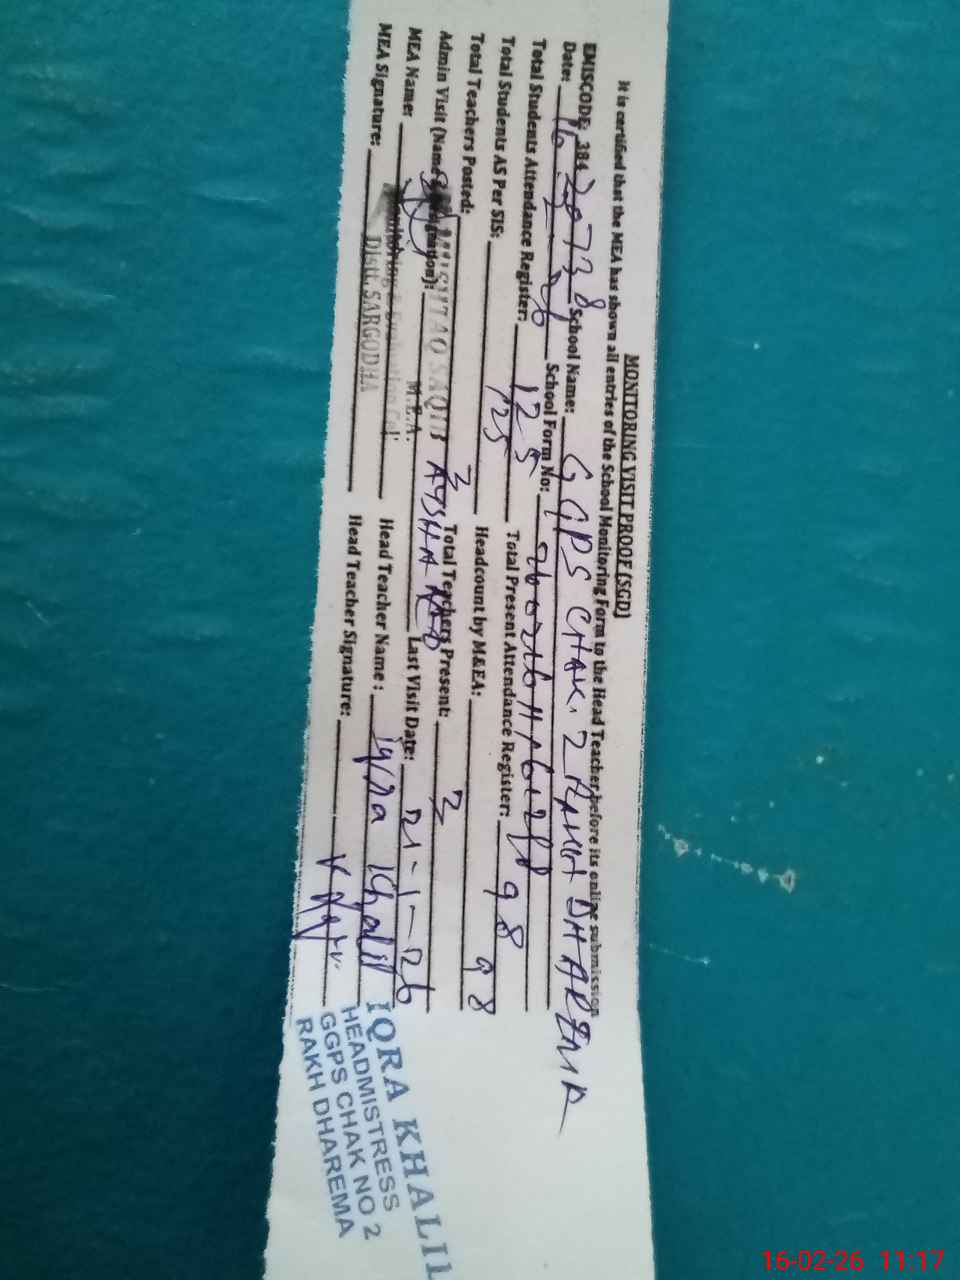 MONITORING VISIT PROOF (SGD)
It is certified that the MEA has shown all entries of the School Monitoring Form to the Head Teacher before its online submission
EMISCODE: 384 20738 School Name: GGPS CHAK. 2 RAKH DHAREMA
Date: 16-2-26 School Form No:
Total Students Attendance Register: 125 Total Present Attendance Register: 98
Total Students AS Per SIS: 125 Headcount by M&EA: 98
Total Teachers Posted: 3 Total Teachers Present: 3
Admin Visit (Name & Designation): AYSHA AEO Last Visit Date: 21-1-26
MEA Name: MUSHTAQ SAQIB Head Teacher Name: Iqra Khalil
M.E.A.
Monitoring & Evaluation Cell
MEA Signature: Head Teacher Signature:
Distt. SARGODHA
IQRA KHALIL
HEADMISTRESS
GGPS CHAK NO 2
RAKH DHAREMA
16-02-26 11:17